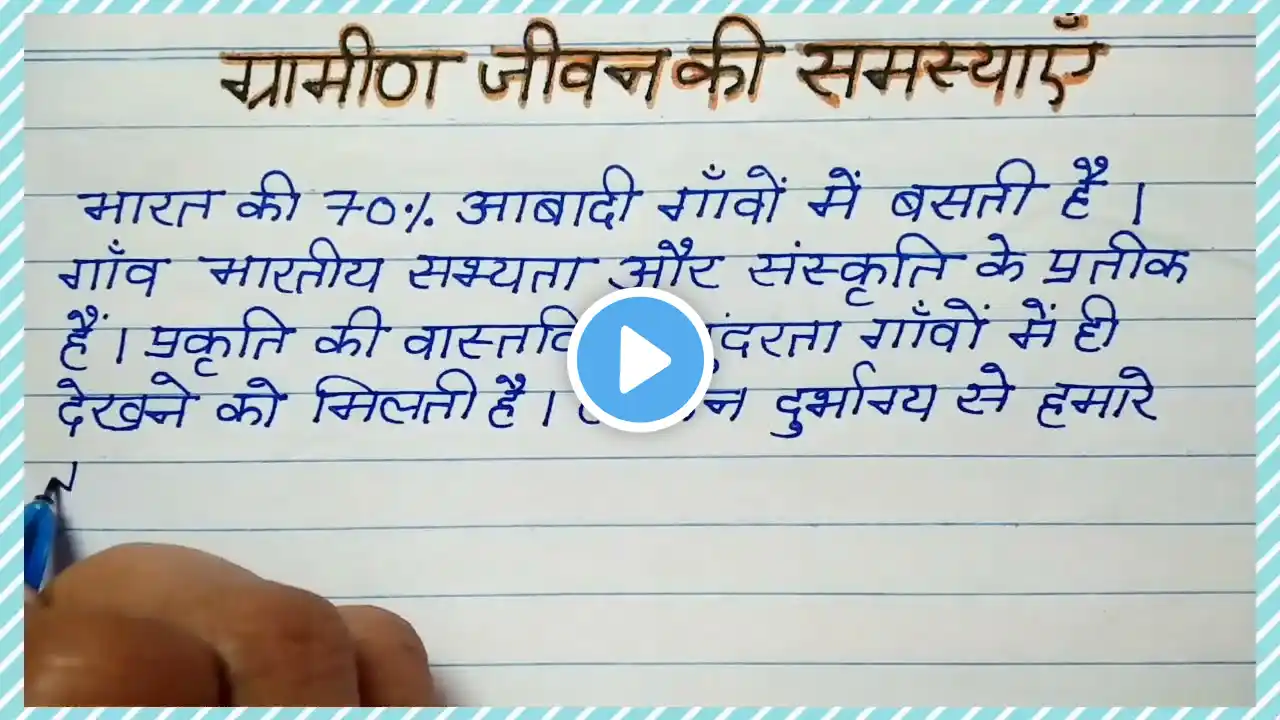 ग्रामीण जीवन की समस्याएँ
भारत की 70% आबादी गाँवों में बसती है ।
गाँव भारतीय सभ्यता और संस्कृति के प्रतीक
हैं । प्रकृति की गाँवों में ही
देखने को मिलती है । दुर्भाग्य से हमारे